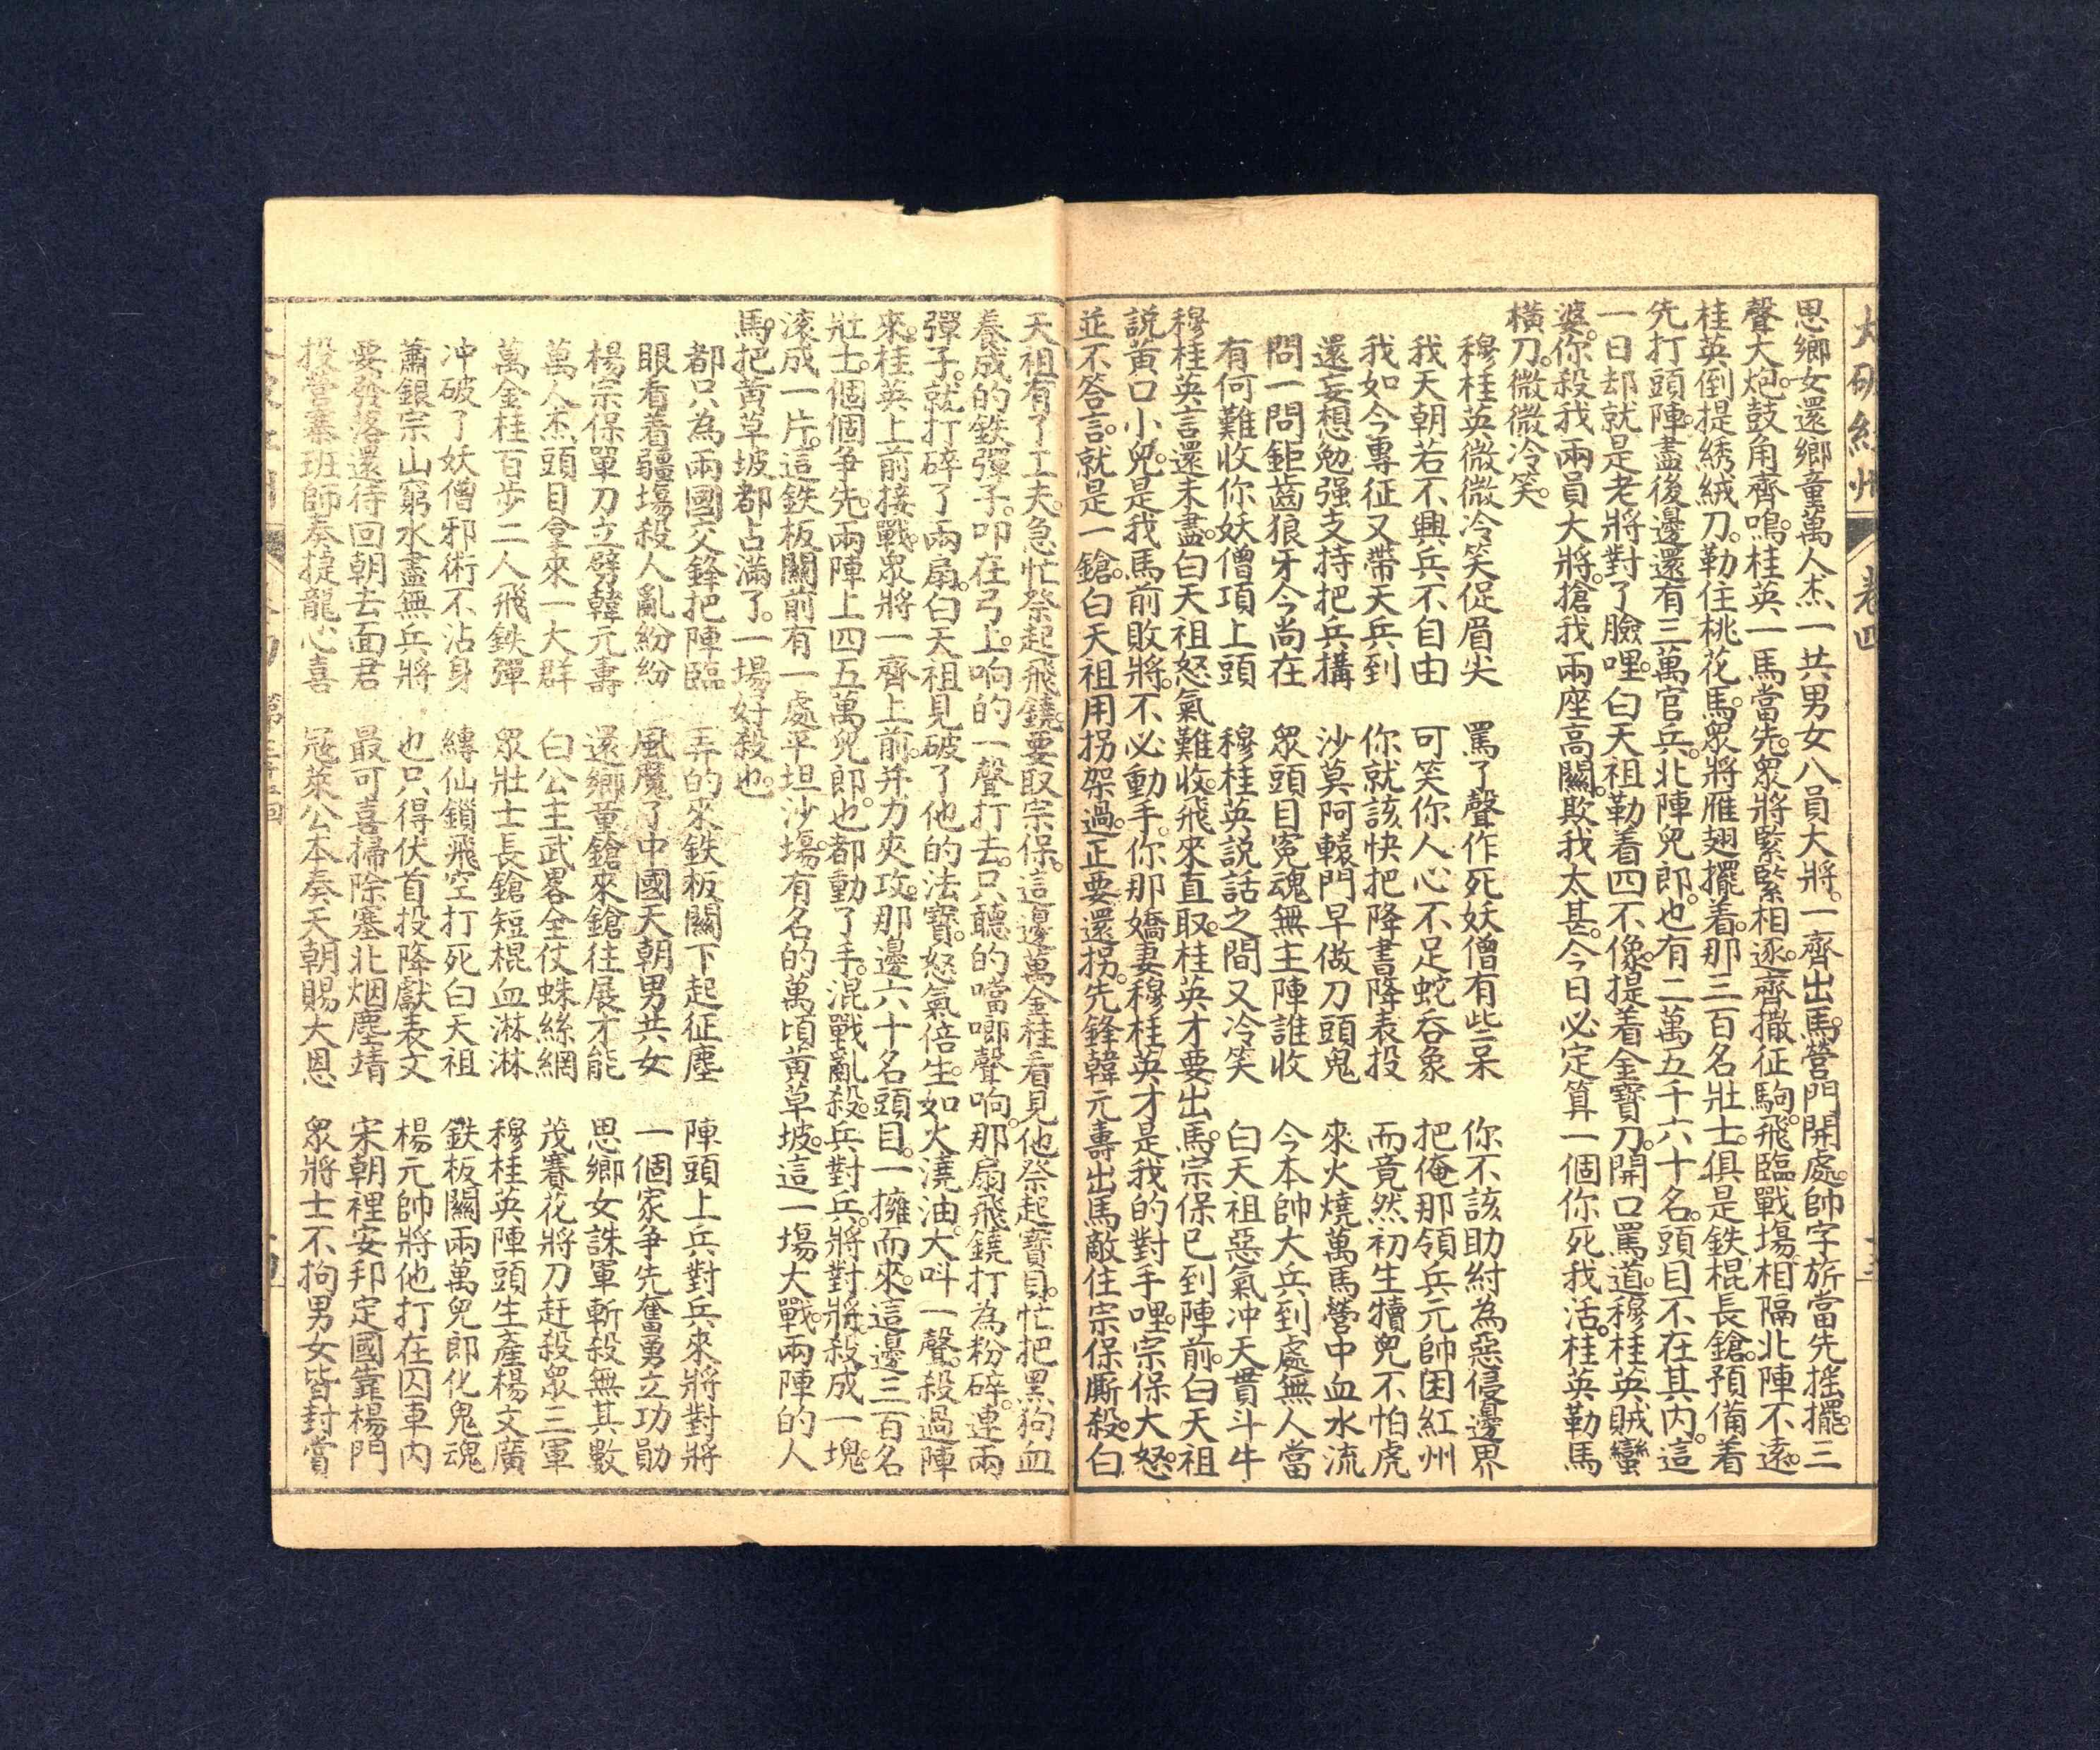 大破紅州 卷四
思鄉女還鄉童萬人杰一共男女八員大將。一齊出馬。營門開處。帥字旂當先搖擺。三
聲大炮。鼓角齊鳴。桂英一馬當先。眾將緊緊相逐。齊撒征駒。飛臨戰場。相隔北陣不遠。
桂英倒提綉絨刀。勒住桃花馬。眾將雁翅擺着。那三百名壯士。俱是鉄棍長鎗。預備着
先打頭陣。盡後邊還有三萬官兵。北陣兒郎。也有二萬五千六十名。頭目不在其內。這
一日却就是老將對了臉哩。白天祖勒着四不像。提着金寶刀。開口罵道。穆桂英賊蠻
婆。你殺我兩員大將。搶我兩座高關。欺我太甚。今日必定算一個你死我活。桂英勒馬
橫刀。微微冷笑。
穆桂英微微冷笑促眉尖 罵了聲作死妖僧有些呆 你不該助紂為惡侵邊界
我天朝若不興兵不自由 可笑你人心不足蛇吞象 把俺那領兵元帥困紅州
我如今專征又帶天兵到 你就該快把降書降表投 而竟然初生犢兒不怕虎
還妄想勉强支持把兵搆 沙莫阿轅門早做刀頭鬼 來火燒萬馬營中血水流
問一問鉅齒狼牙今尚在 眾頭目冤魂無主陣誰收 今本帥大兵到處無人當
有何難收你妖僧項上頭 穆桂英說話之間又冷笑 白天祖惡氣冲天貫斗牛
穆桂英言還未盡。白天祖怒氣難收。飛來直取。桂英才要出馬。宗保已到陣前。白天祖
說黃口小兒。是我馬前敗將。不必動手。你那嬌妻穆桂英才是我的對手哩。宗保大怒。
並不答言。就是一鎗。白天祖用拐架過。正要還拐。先鋒韓元壽出馬敵住宗保厮殺。白
天祖有了工夫。急忙祭起飛鐃。要取宗保。這邊萬金桂看見他祭起寶貝。忙把黑狗血
養成的鉄彈子。叩在弓上。响的一聲打去。只聽的噹啷聲响。那扇飛鐃打為粉碎。連兩
彈子。就打碎了兩扇。白天祖見破了他的法寶。怒氣倍生。如火澆油。大呌一聲。殺過陣
來。桂英上前接戰。眾將一齊上前。并力夾攻。那邊六十名頭目。一擁而來。這邊三百名
壯士。個個争先。兩陣上四五萬兒郎。也都動了手。混戰亂殺。兵對兵。將對將。殺成一塊。
滾成一片。這鉄板關前有一處平坦沙塲。有名的萬頃黃草坡。這一塲大戰。兩陣的人
馬。把黃草坡都占滿了。一場好殺也。
都只為兩國交鋒把陣臨 弄的來鉄板關下起征塵 陣頭上兵對兵來將對將
眼看着疆塲殺人亂紛紛 風魔了中國天朝男共女 一個家争先奮勇立功勛
楊宗保單刀立劈韓元壽 還鄉童鎗來鎗往展才能 思鄉女誅軍斬殺無其數
萬人杰頭目拿來一大群 白公主武畧全仗蛛絲網 茂賽花將刀赶殺眾三軍
萬金桂百步二人飛鉄彈 眾壯士長鎗短棍血淋淋 穆桂英陣頭生產楊文廣
冲破了妖僧邪術不沾身 縳仙鎖飛空打死白天祖 鉄板關兩萬兒郎化鬼魂
蕭銀宗山窮水盡無兵將 也只得伏首投降獻表文 楊元帥將他打在囚車內
要發落還待回朝去面君 最可喜掃除塞北烟塵靖 宋朝裡安邦定國靠楊門
投營寨班師奏捷龍心喜 冦萊公本奏天朝賜大恩 眾將士不拘男女皆封賞